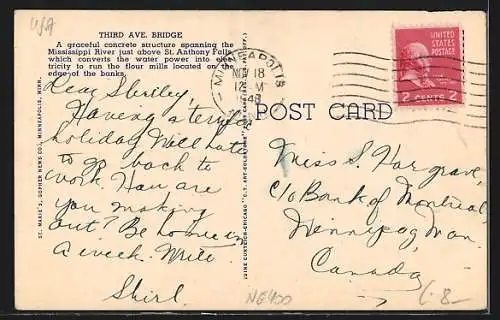 USA
THIRD AVE. BRIDGE
A graceful concrete structure spanning the
Mississippi River just above St. Anthony Falls
which converts the water power into elec-
tricity to run the flour mills located on the
edge of the banks.
Dear Shirlley,
Having a terrific
holiday Will hate
to go back to
work. How are
you making
out? Be home in
a week. Write
Shirl.
ST. MARIE'S GOPHER NEWS CO., MINNEAPOLIS, MINN.
MINNEAPOLIS
NOV 18
12 M
UNITED
STATES
POSTAGE
2 CENTS 2
POST CARD
Miss S. Hargrave,
c/o Bank of Montreal,
Winnipeg Man.
Canada
NE400